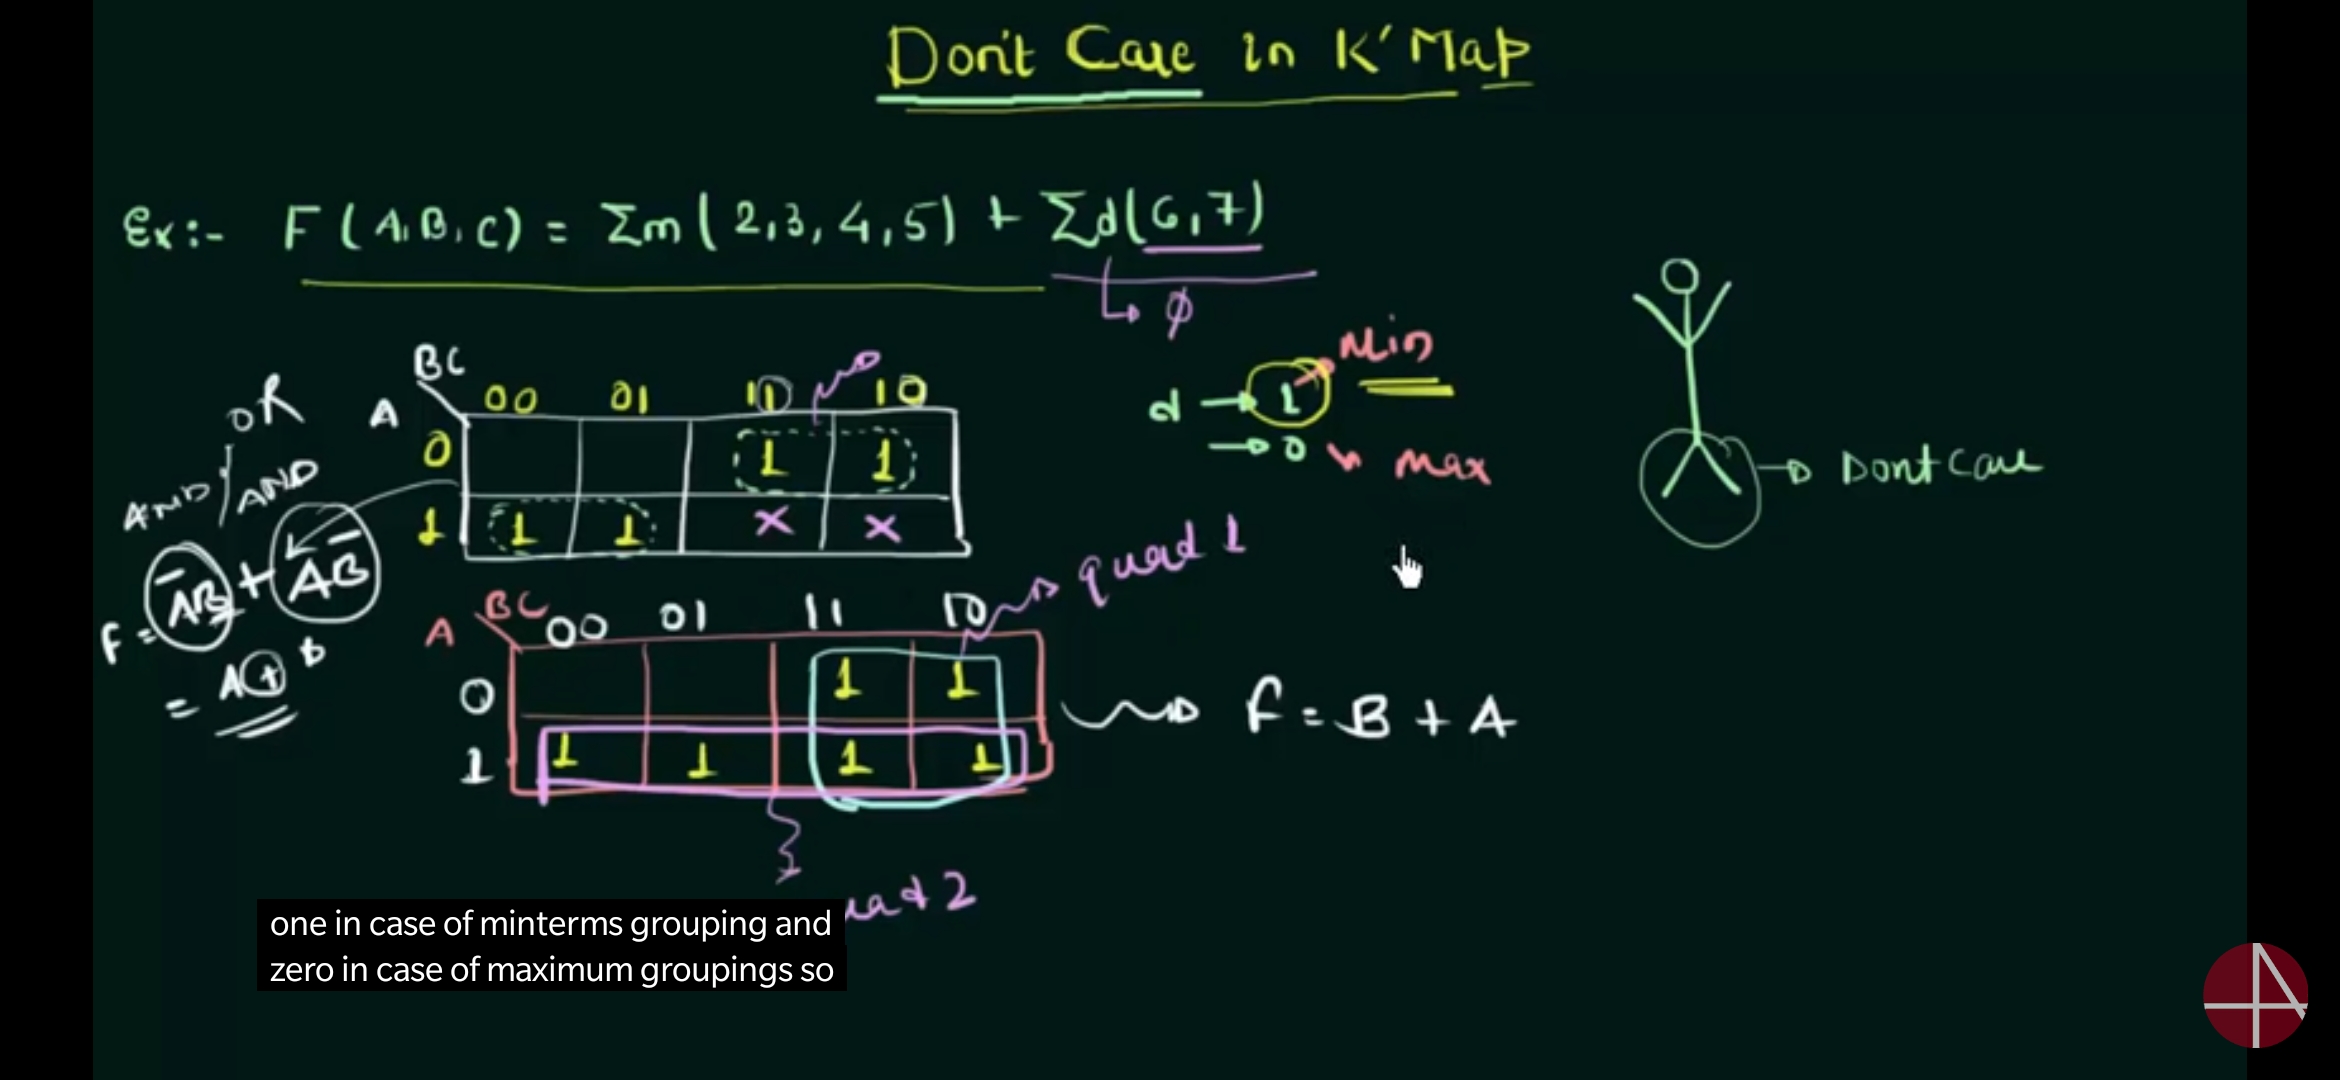 Don't Care in K' Map
Ex:- F(A,B,C) = Σm(2,3,4,5) + Σd(6,7)
→ φ
BC
A 00 01 11 10
0 1 1
1 1 1 x x
d → 1 Min
→ 0 Max
Dont Care
OR
AND AND
F = A̅B + AB̅
= A⊕B
quad 1
BC
A 00 01 11 10
0 1 1
1 1 1 1 1
f = B + A
uad 2
one in case of minterms grouping and
zero in case of maximum groupings so